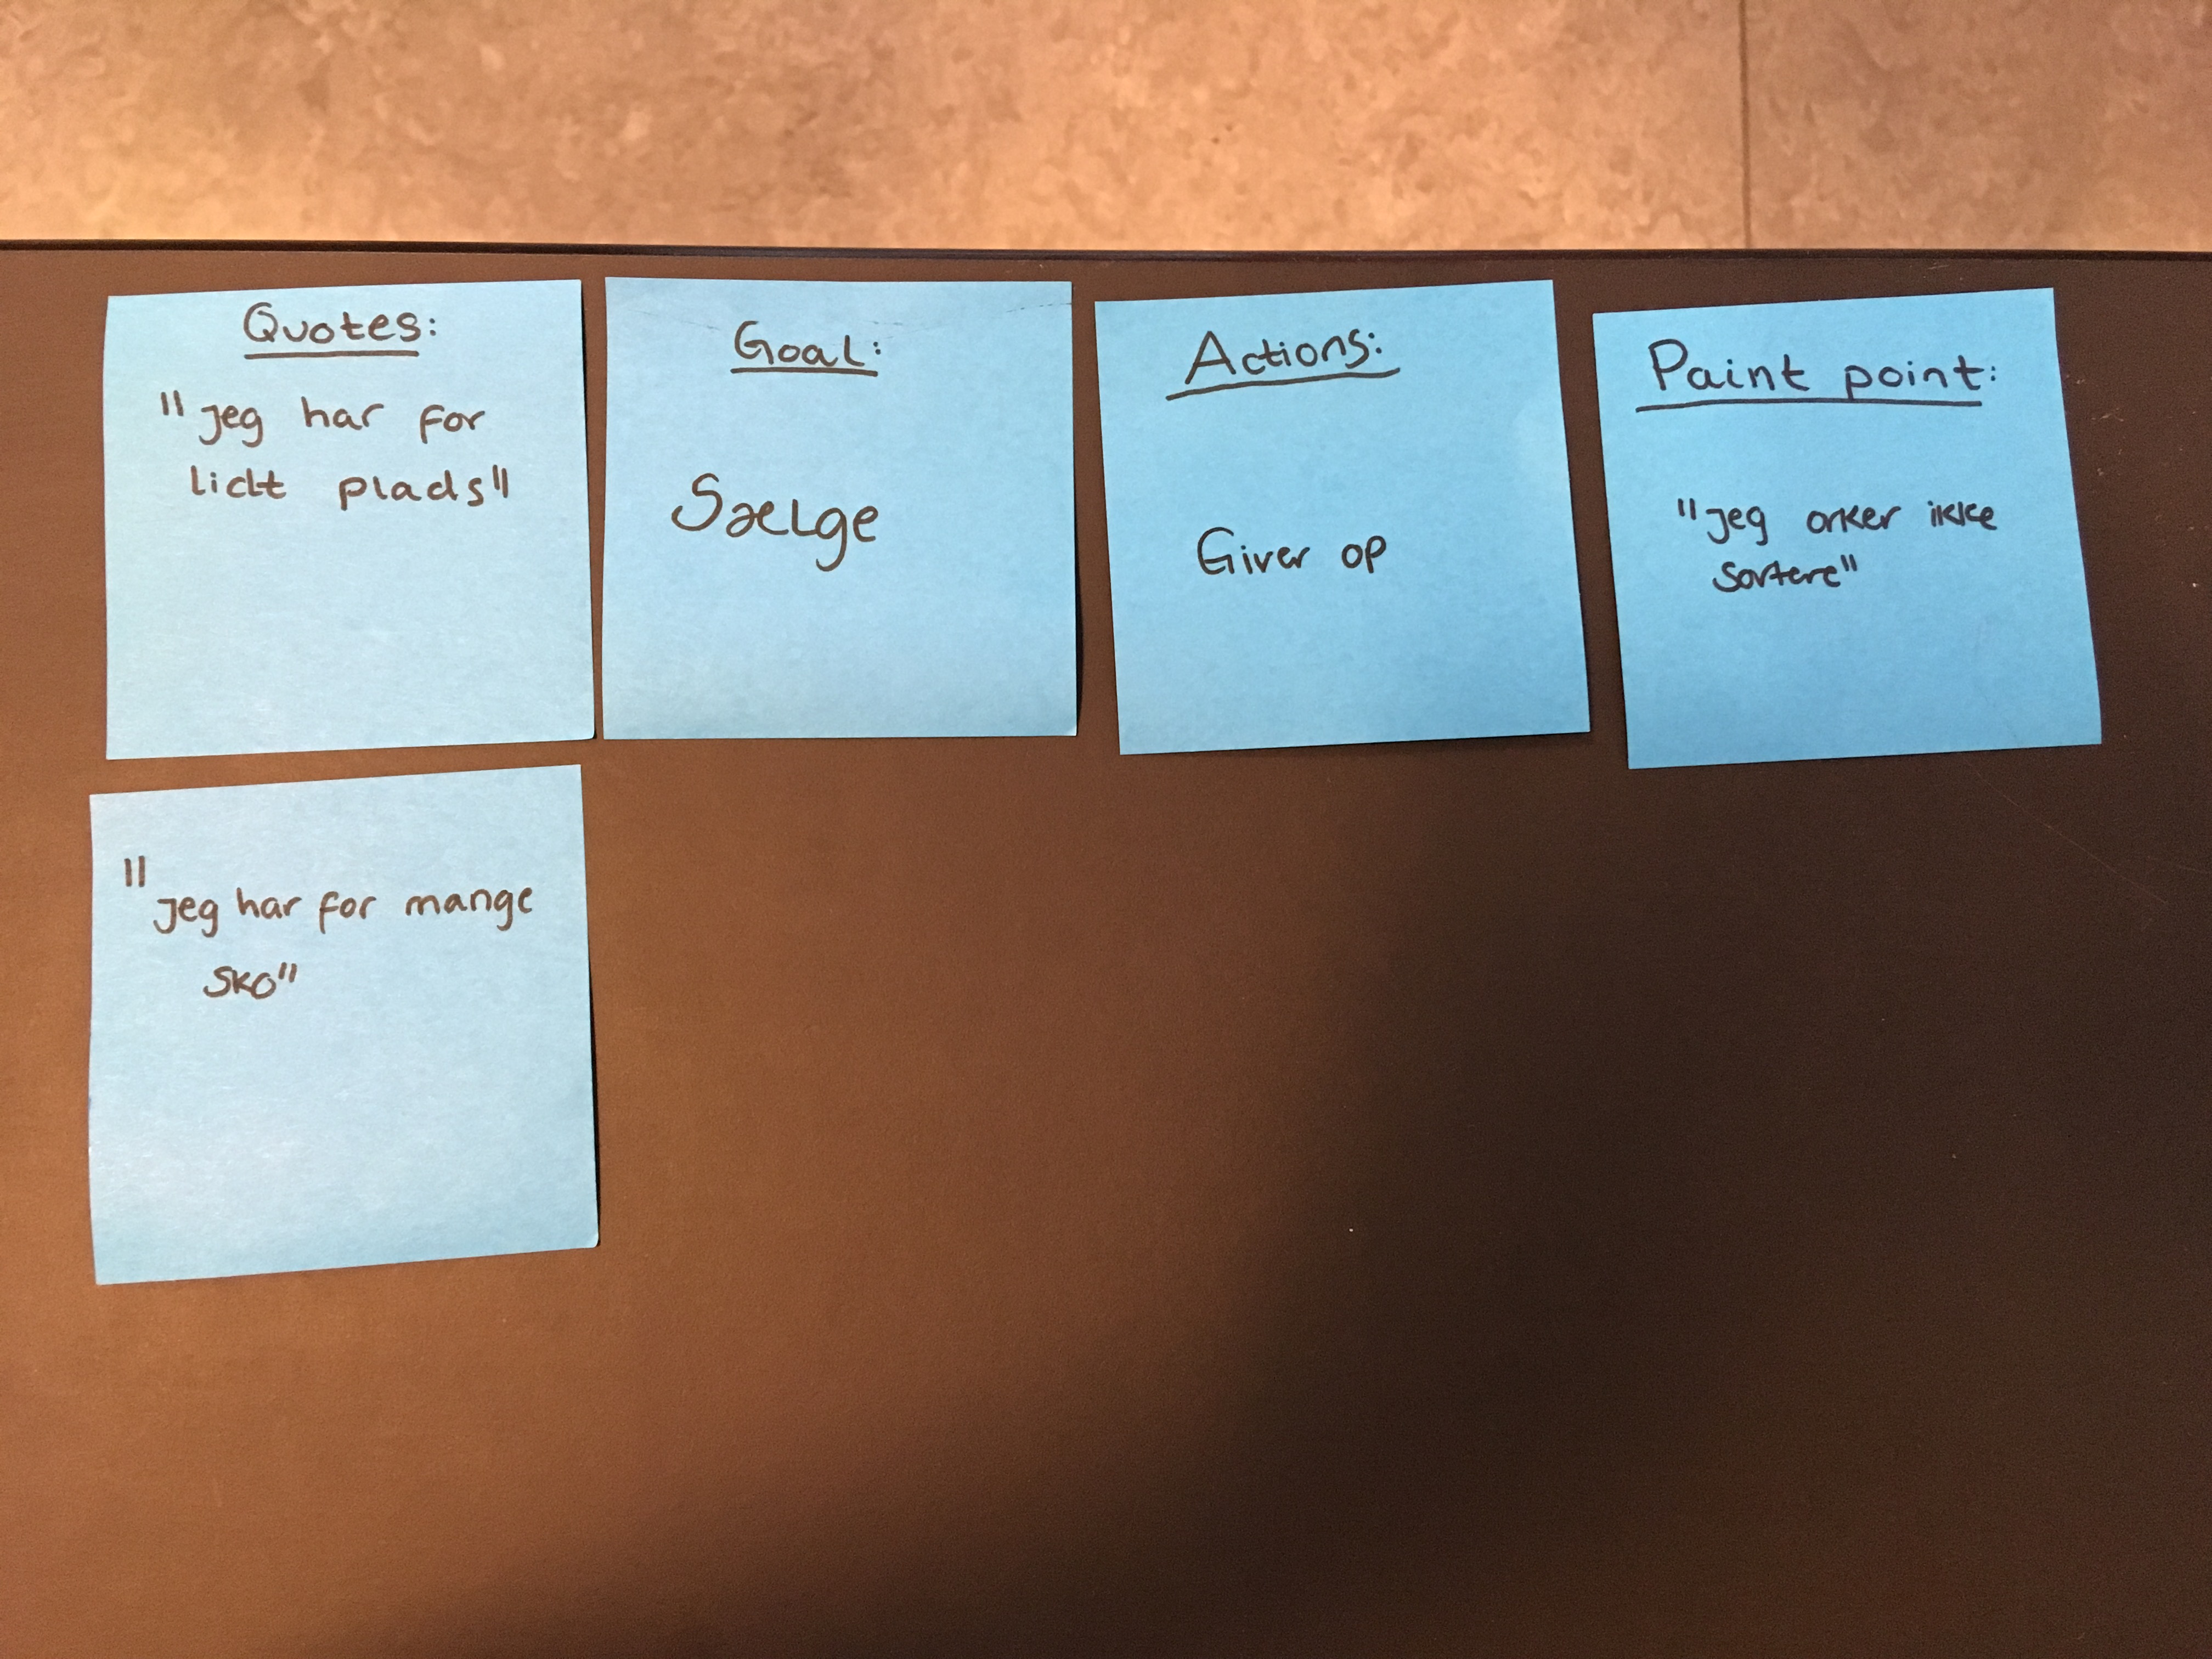 Quotes:
"Jeg har for
lidt plads"
"
Jeg har for mange
sko"
Goal:
Sælge
Actions:
Giver op
Paint point:
"Jeg orker ikke
sortere"